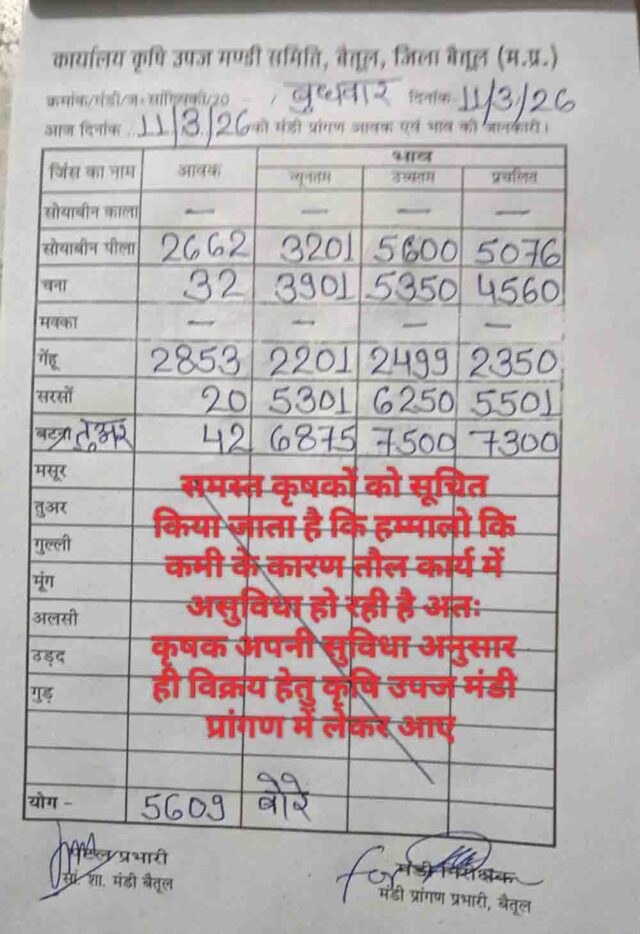 कार्यालय कृषि उपज मण्डी समिति, बैतूल, जिला बैतूल (म.प्र.)
क्रमांक/मंडी/ज. सांख्यिकी/20 - / बुधवार दिनांक 11/3/26
आज दिनांक 11/3/26 को मंडी प्रांगण आवक एवं भाव की जानकारी।
जिंस का नाम आवक भाव
न्यूनतम उच्चतम प्रचलित
सोयाबीन काला — — — —
सोयाबीन पीला 2662 3201 5600 5076
चना 32 3901 5350 4560
मक्का — — — —
गेंहू 2853 2201 2499 2350
सरसों 20 5301 6250 5501
बटरा तुअर 42 6875 7500 7300
मसूर
तुअर
गुल्ली
मूंग
अलसी
उड़द
गुड़
समस्त कृषकों को सूचित
किया जाता है कि हम्मालो कि
कमी के कारण तौल कार्य में
असुविधा हो रही है अतः
कृषक अपनी सुविधा अनुसार
ही विक्रय हेतु कृषि उपज मंडी
प्रांगण में लेकर आए
योग - 5609 बोरे
प्रभारी
सां. शा. मंडी बैतूल
for मंडी निरीक्षक
मंडी प्रांगण प्रभारी, बैतूल